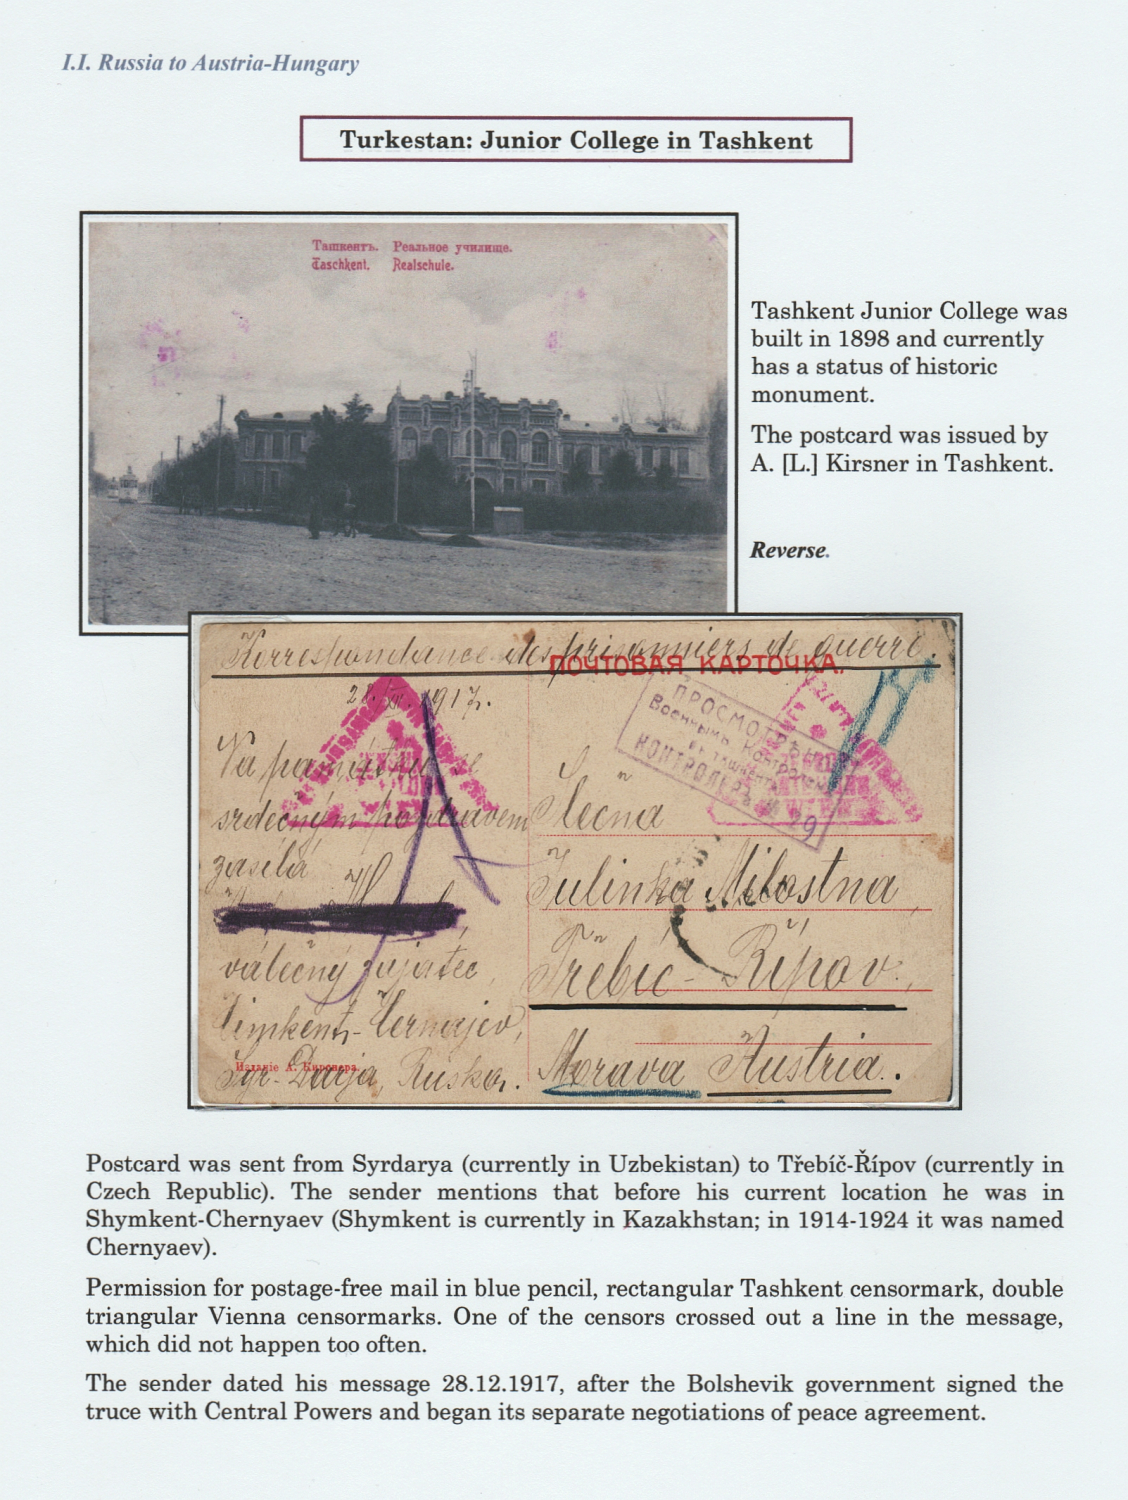 I.I. Russia to Austria-Hungary
Turkestan: Junior College in Tashkent
Ташкентъ. Реальное училище.
Taschkent. Realschule.
Tashkent Junior College was
built in 1898 and currently
has a status of historic
monument.
The postcard was issued by
A. [L.] Kirsner in Tashkent.
Reverse.
Korrespondance des prisonniers de guerre.
ПОЧТОВАЯ КАРТОЧКА.
1917.
Na památku se
srdečným pozdravem
zasílá
válečný zajatec
Čimkent-Černajev,
Syr-Darja, Ruska.
Изданіе А. Кирснера.
ПРОСМОТРѢНО
Военнымъ Контролем
КОНТРОЛЕРЪ № 29
Slečna
Julinka Milostna,
Třebíč-Řípov,
Morava Austria.
Postcard was sent from Syrdarya (currently in Uzbekistan) to Třebíč-Řípov (currently in
Czech Republic). The sender mentions that before his current location he was in
Shymkent-Chernyaev (Shymkent is currently in Kazakhstan; in 1914-1924 it was named
Chernyaev).
Permission for postage-free mail in blue pencil, rectangular Tashkent censormark, double
triangular Vienna censormarks. One of the censors crossed out a line in the message,
which did not happen too often.
The sender dated his message 28.12.1917, after the Bolshevik government signed the
truce with Central Powers and began its separate negotiations of peace agreement.